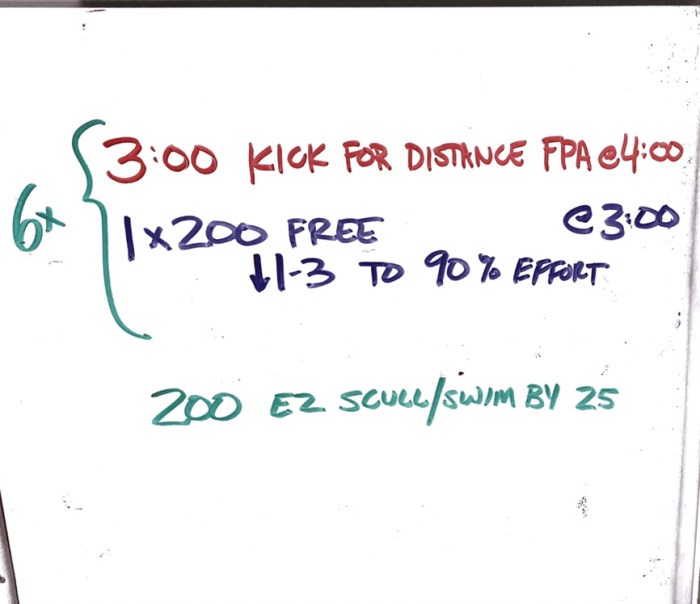 6x
3:00 KICK FOR DISTANCE FPA @4:00
1x200 FREE @3:00
↓1-3 TO 90% EFFORT
200 EZ SCULL/SWIM BY 25